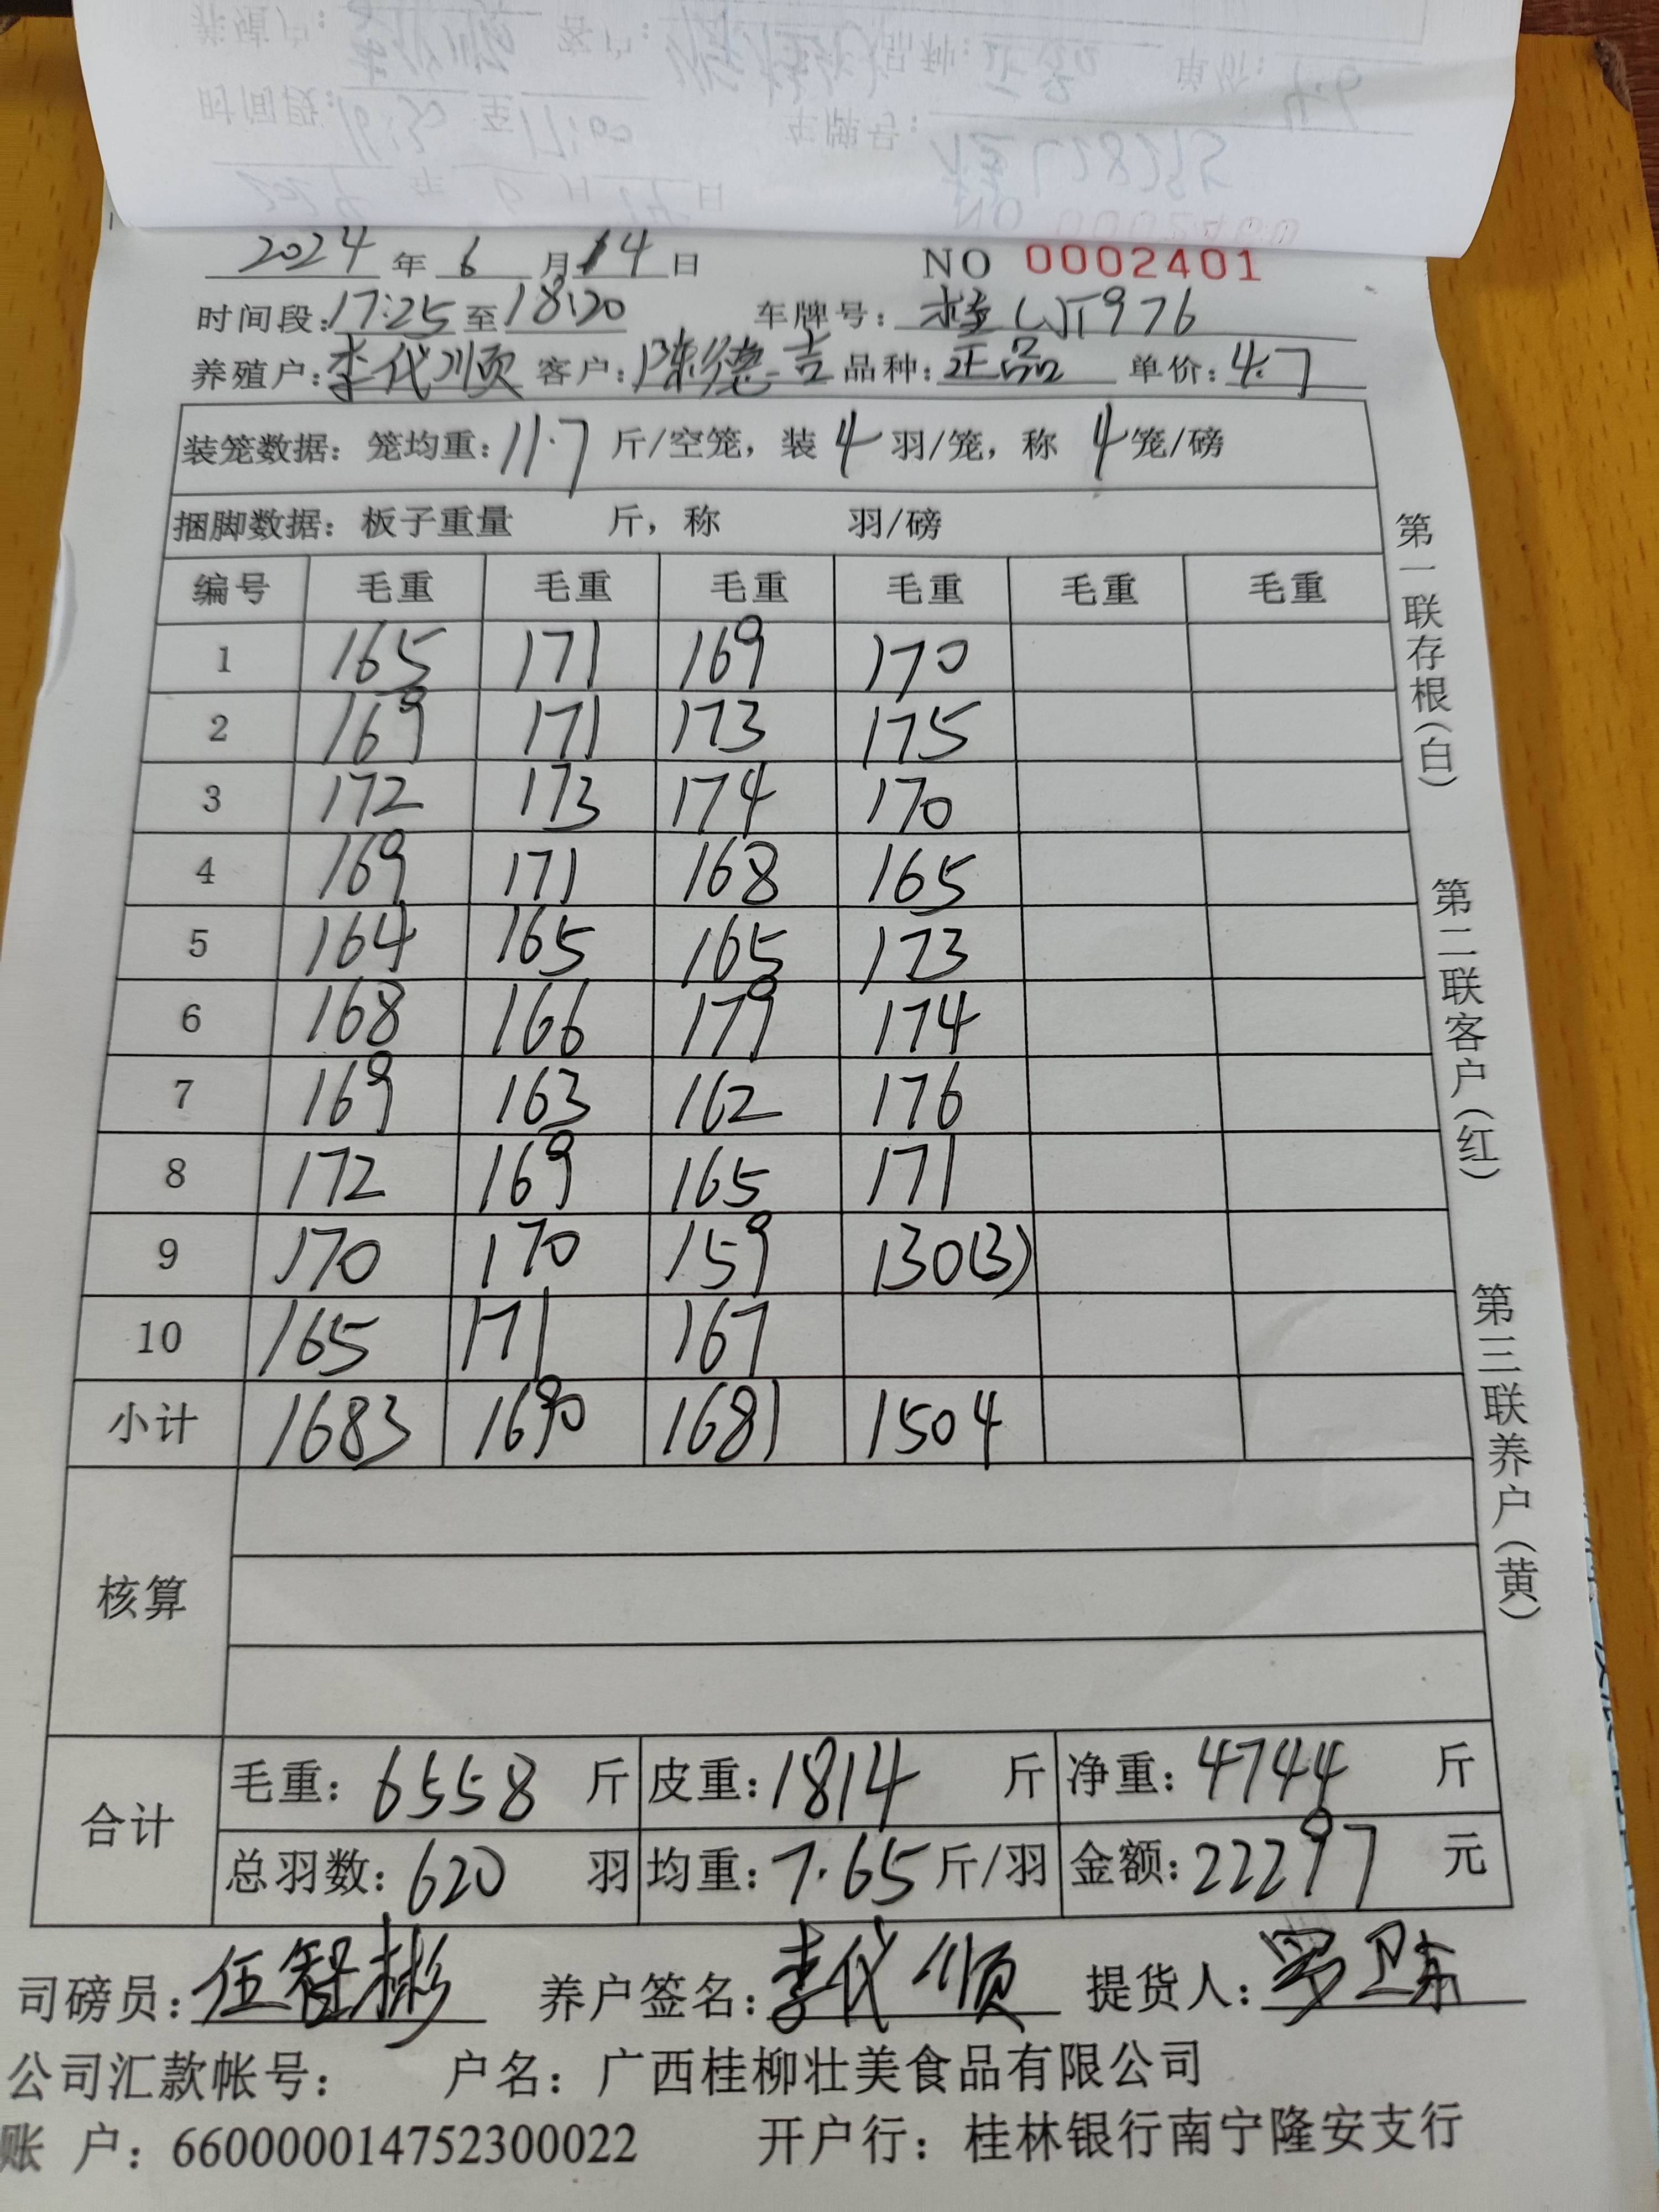 2024 年 6 月 14 日 NO 0002401
时间段:17:25 至 18:20 车牌号: 桂LJT976
养殖户:李代顺 客户:陈德吉 品种:正品 单价:4.7
装笼数据: 笼均重:11.7 斤/空笼, 装 4 羽/笼, 称 4 笼/磅
捆脚数据: 板子重量 斤, 称 羽/磅
编号 毛重 毛重 毛重 毛重 毛重 毛重
1 165 171 169 170
2 169 171 173 175
3 172 173 174 170
4 169 171 168 165
5 164 165 165 173
6 168 166 179 174
7 169 163 162 176
8 172 169 165 171
9 170 170 159 130(3)
10 165 171 167
小计 1683 1690 1681 1504
核算
合计
毛重: 6558 斤 皮重: 1814 斤 净重: 4744 斤
总羽数: 620 羽 均重: 7.65 斤/羽 金额: 22297 元
司磅员: 伍智彬 养户签名: 李代顺 提货人: 罗卫东
公司汇款帐号: 户名: 广西桂柳壮美食品有限公司
账 户: 660000014752300022 开户行: 桂林银行南宁隆安支行
第一联存根(白)
第二联客户(红)
第三联养户(黄)